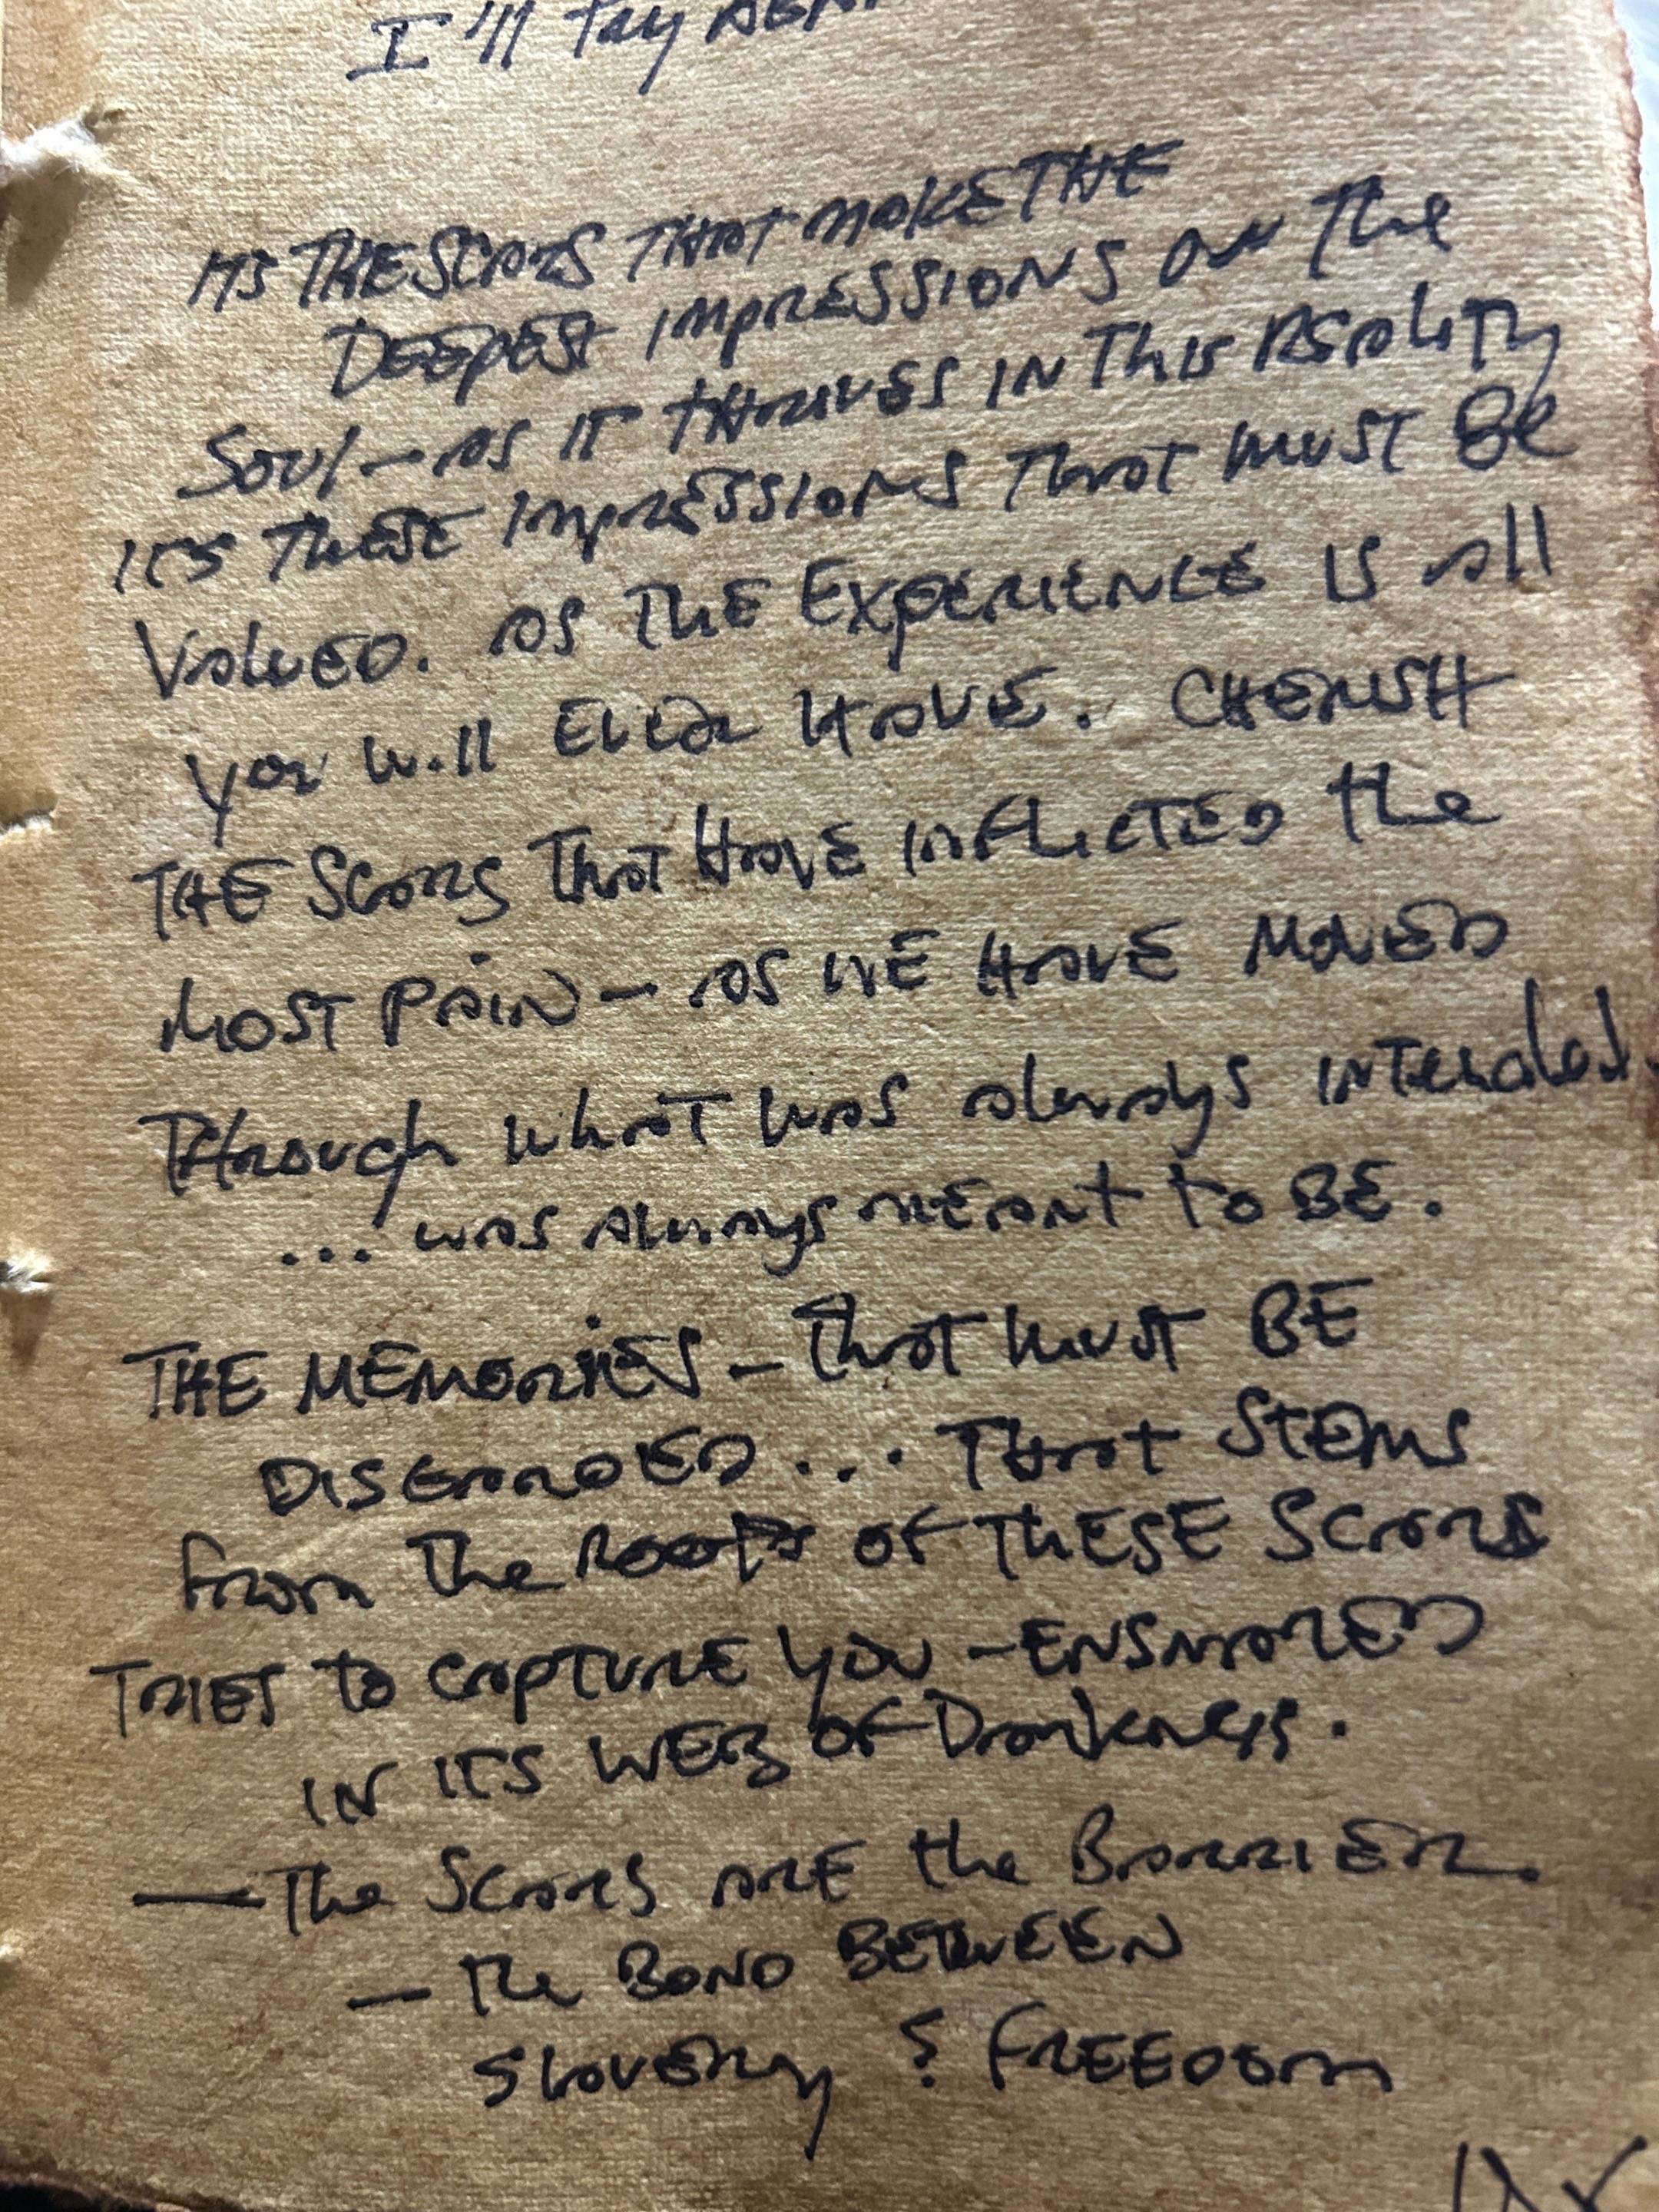 I'll try
ITS THE SCARS THAT MAKE THE
DEEPEST IMPRESSIONS ON The
Soul – AS IT THRIVES IN This REALITY
IT'S THESE IMPRESSIONS THAT MUST Be
VALUED. AS THE EXPERIENCE IS All
you will EVER HAVE. CHERISH
THE SCARS THAT HAVE INFLICTED the
MOST PAIN – AS WE HAVE MOVED
Through what was always INTENDED.
... was always MEANT to BE.
THE MEMORIES – That must BE
DISCARDED ... THAT STEMS
from the ROOTS OF THESE SCARS
TRIES to CAPTURE you – ENSNARED
IN ITS WEB OF Darkness.
— The SCARS ARE the BARRIER.
— The BOND BETWEEN
SLAVERY & FREEDOM